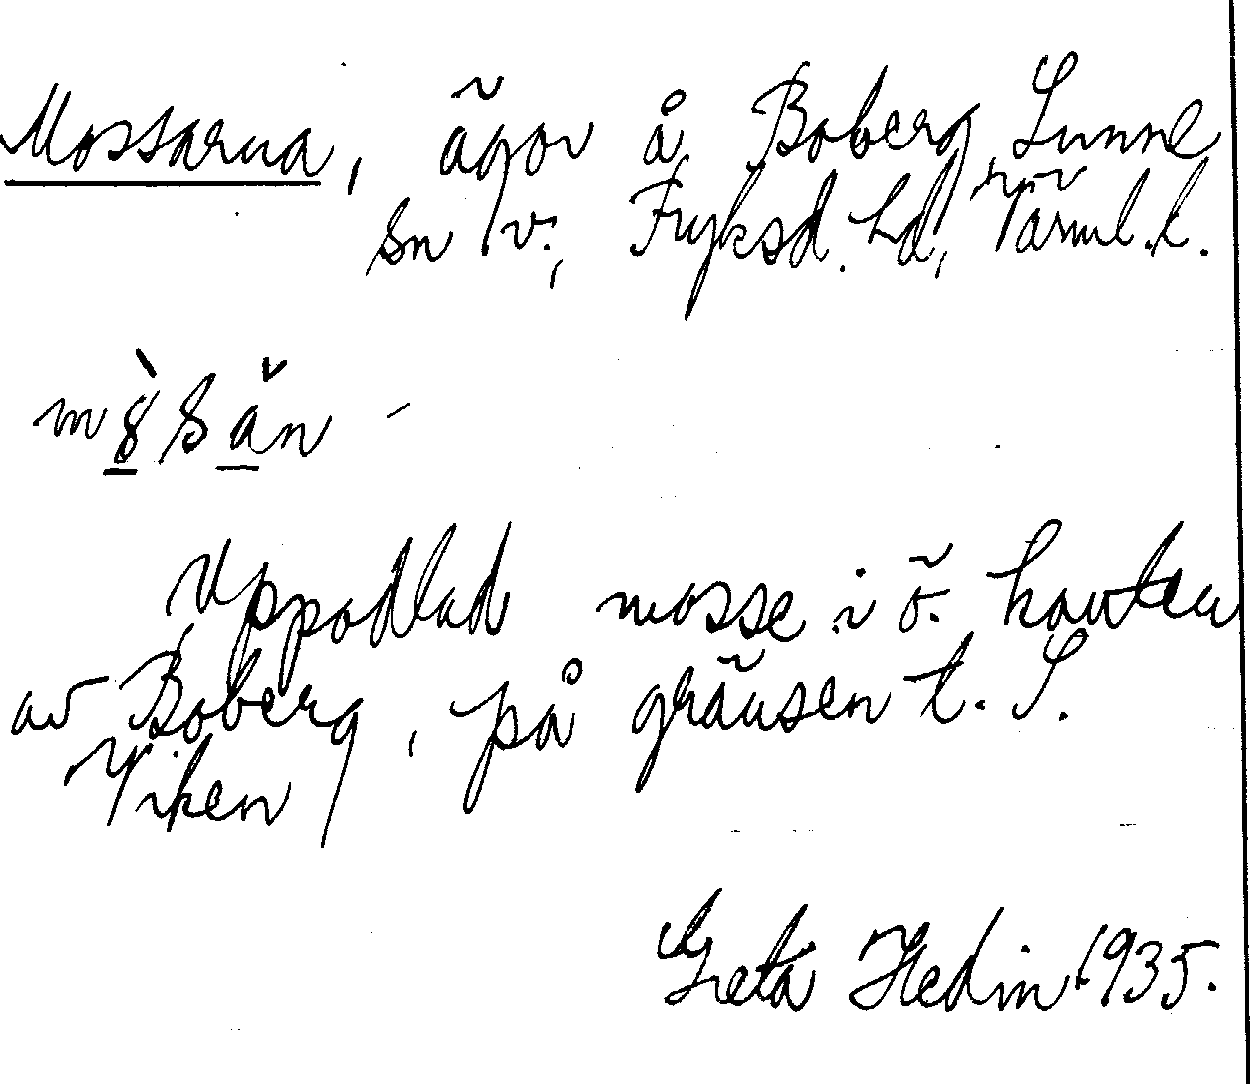 Mossarna, ägor å Boberg, Sunne
sn v., Fryksd. hd, Värml. l.
Uppodlad mosse i ö. kanten
av Boberg, på gränsen t. S.
Viken
Greta Hedin 1935.